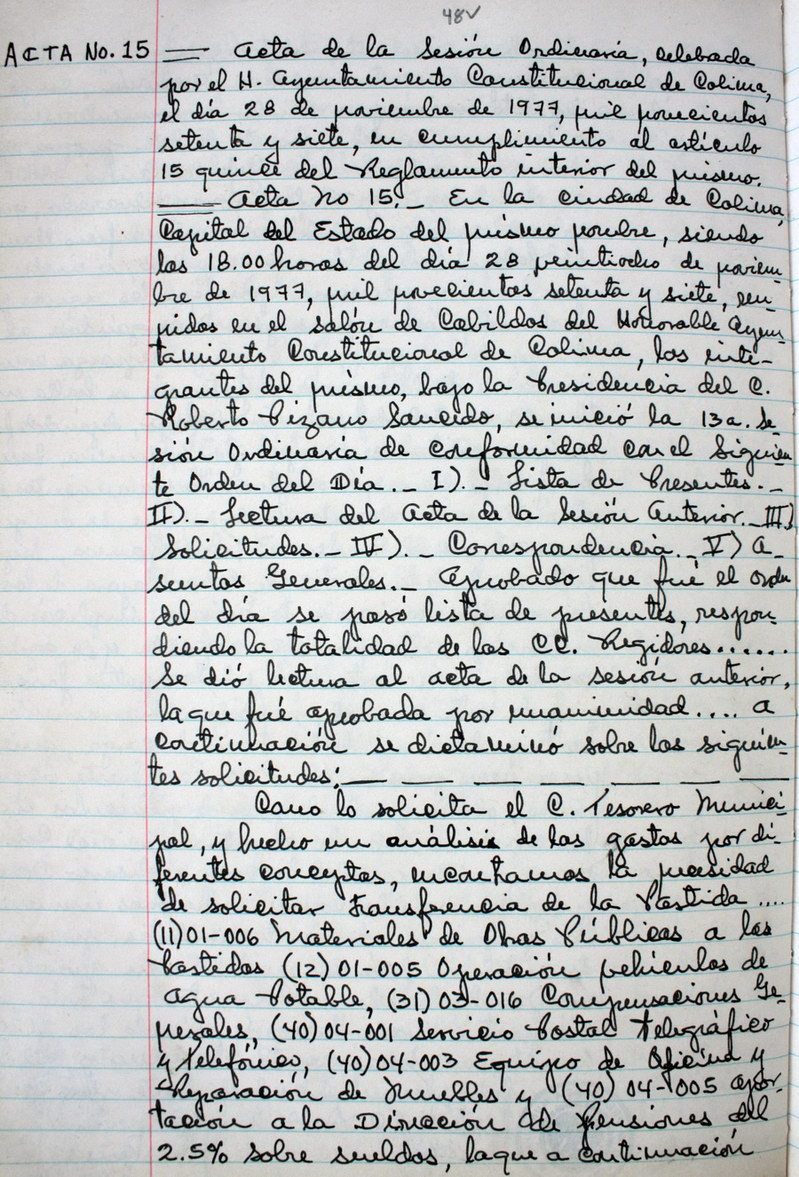 48v
ACTA No. 15 — Acta de la Sesión Ordinaria, celebrada
por el H. Ayuntamiento Constitucional de Colima,
el día 28 de noviembre de 1977, mil novecientos
setenta y siete, en cumplimiento al artículo
15 quince del Reglamento interior del mismo.
— Acta No 15.- En la ciudad de Colima,
Capital del Estado del mismo nombre, siendo
las 18.00 horas del día 28 veintiocho de noviem-
bre de 1977, mil novecientos setenta y siete, reu-
nidos en el salón de Cabildos del Honorable Ayun-
tamiento Constitucional de Colima, los inte-
grantes del mismo, bajo la Presidencia del C.
Roberto Pizano Saucedo, se inició la 13a. Se-
sión Ordinaria de conformidad con el Siguien-
te Orden del Día._ I)._ Lista de Presentes._
II)._ Lectura del Acta de la Sesión Anterior._ III)
Solicitudes._ IV)._ Correspondencia._ V) A-
suntos Generales._ Aprobado que fué el orden
del día se pasó lista de presentes, respon-
diendo la totalidad de los CC. Regidores......
Se dió lectura al acta de la sesión anterior,
la que fué aprobada por unanimidad.... A
continuación se dictaminó sobre las siguien-
tes solicitudes:— — — — — — —
Como lo solicita el C. Tesorero Munici-
pal, y hecho un análisis de los gastos por di-
ferentes conceptos, encontramos la necesidad
de solicitar transferencia de la Partida ....
(11)01-006 Materiales de Obras Públicas a las
Partidas (12) 01-005 Operación vehículos de
Agua Potable, (31) 03-016 Compensaciones Ge-
nerales, (40) 04-001 Servicio Postal Telegráfico
y Telefónico, (40) 04-003 Equipo de Oficina y
Reparación de Muebles y (40) 04-005 apor-
tación a la Dirección de Pensiones del
2.5% sobre sueldos, la que a continuación